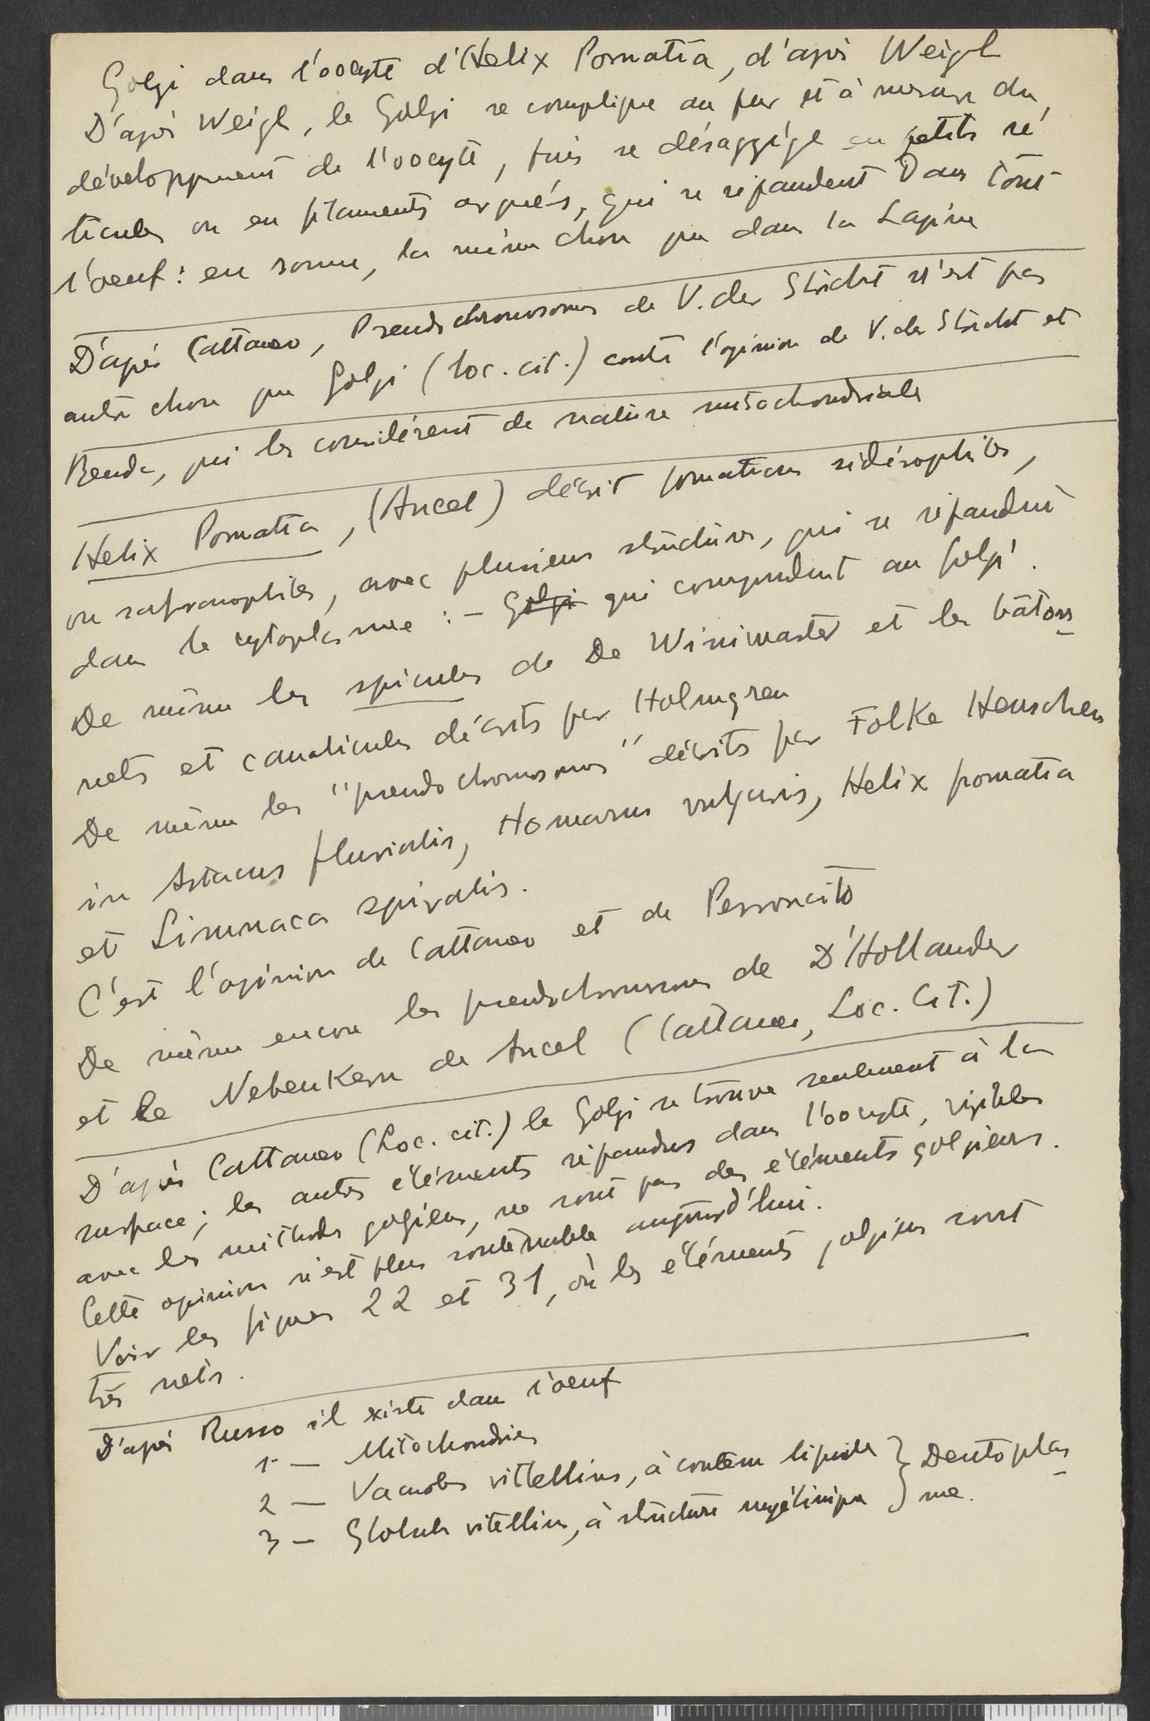 Golgi dans l'oocyte d'Helix Pomatia, d'après Weigl
D'après Weigl, le Golgi se complique au fur et à mesure du
développement de l'oocyte, puis se désaggrége en petits ré
ticules ou en filaments arqués, qui se répandent dans tout
l'oeuf: en somme, la même chose que dans la Lapine
D'après Cattaneo, Pseudochromosomes de V. der Stricht n'est pas
autre chose que Golgi (loc. cit.) contre l'opinion de V. der Stricht et
Benda, qui les considérent de nature mitochondriale
Helix Pomatia, (Ancel) décrit formations sidérophiles,
ou safranophiles, avec plusieurs structures, qui se répandent
dans le cytoplasme : - Golgi qui correspondent au Golgi.
De même les spicules de De Winiwarter et les bâton-
nets et canalicules décrits par Holmgren
De même les "pseudochromosomes" décrits par Folke Henschen
in Astacus fluvialis, Homarus vulgaris, Helix pomatia
et Limnaea spiralis.
C'est l'opinion de Cattaneo et de Perroncito
De même encore les pseudochromosomes de D'Hollander
et le Nebenkern de Ancel (Cattaneo, Loc. Cit.)
D'après Cattaneo (Loc. cit.) le Golgi se trouve seulement à la
surface; les autres éléments répandus dans l'oocyte, visibles
avec les méthodes golgiens, ne sont pas des éléments golgiens.
Cette opinion n'est plus soutenable aujourd'hui.
Voir les figures 22 et 31, où les éléments golgiens sont
très nets.
D'après Russo il existe dans l'oeuf
1 — Mitochondries
2 — Vacuoles vittellins, à contenu lipoide } Deutoplas-
3 — Globules vitellins, à structure myélinique } me.